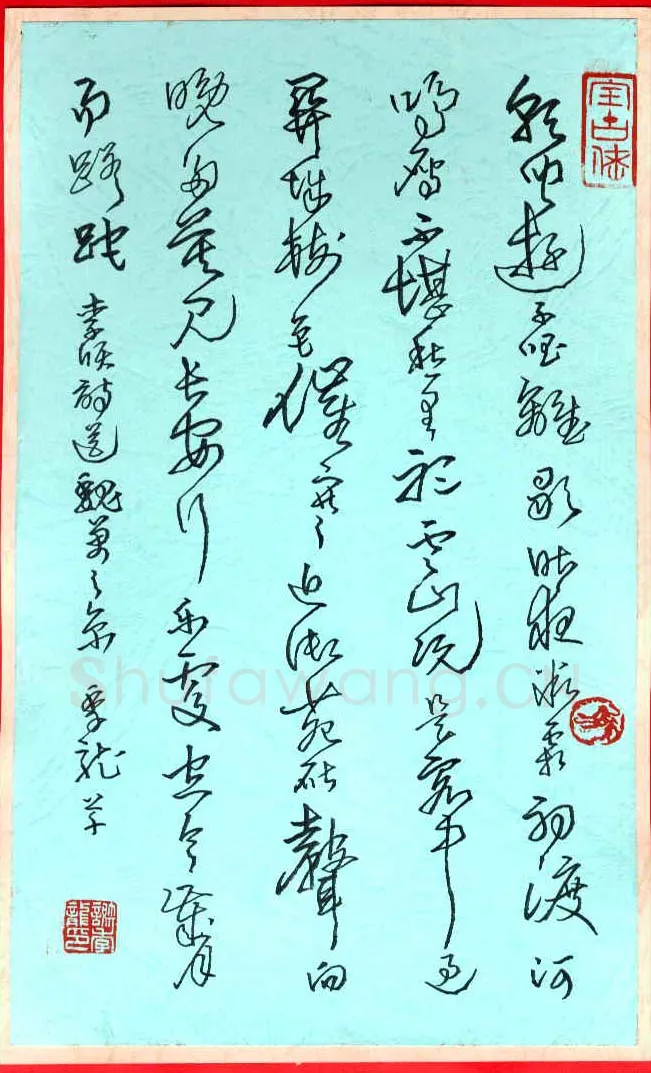 朝闻遊子唱離歌昨夜微霜初渡河
鸿雁不堪愁里听雲山况是客中过
關城樹色催寒近御苑砧聲向
晚多莫见长安行乐處空令歲月
蹉跎 李颀詩送魏萬之京 季龍草
Shufawang.cn